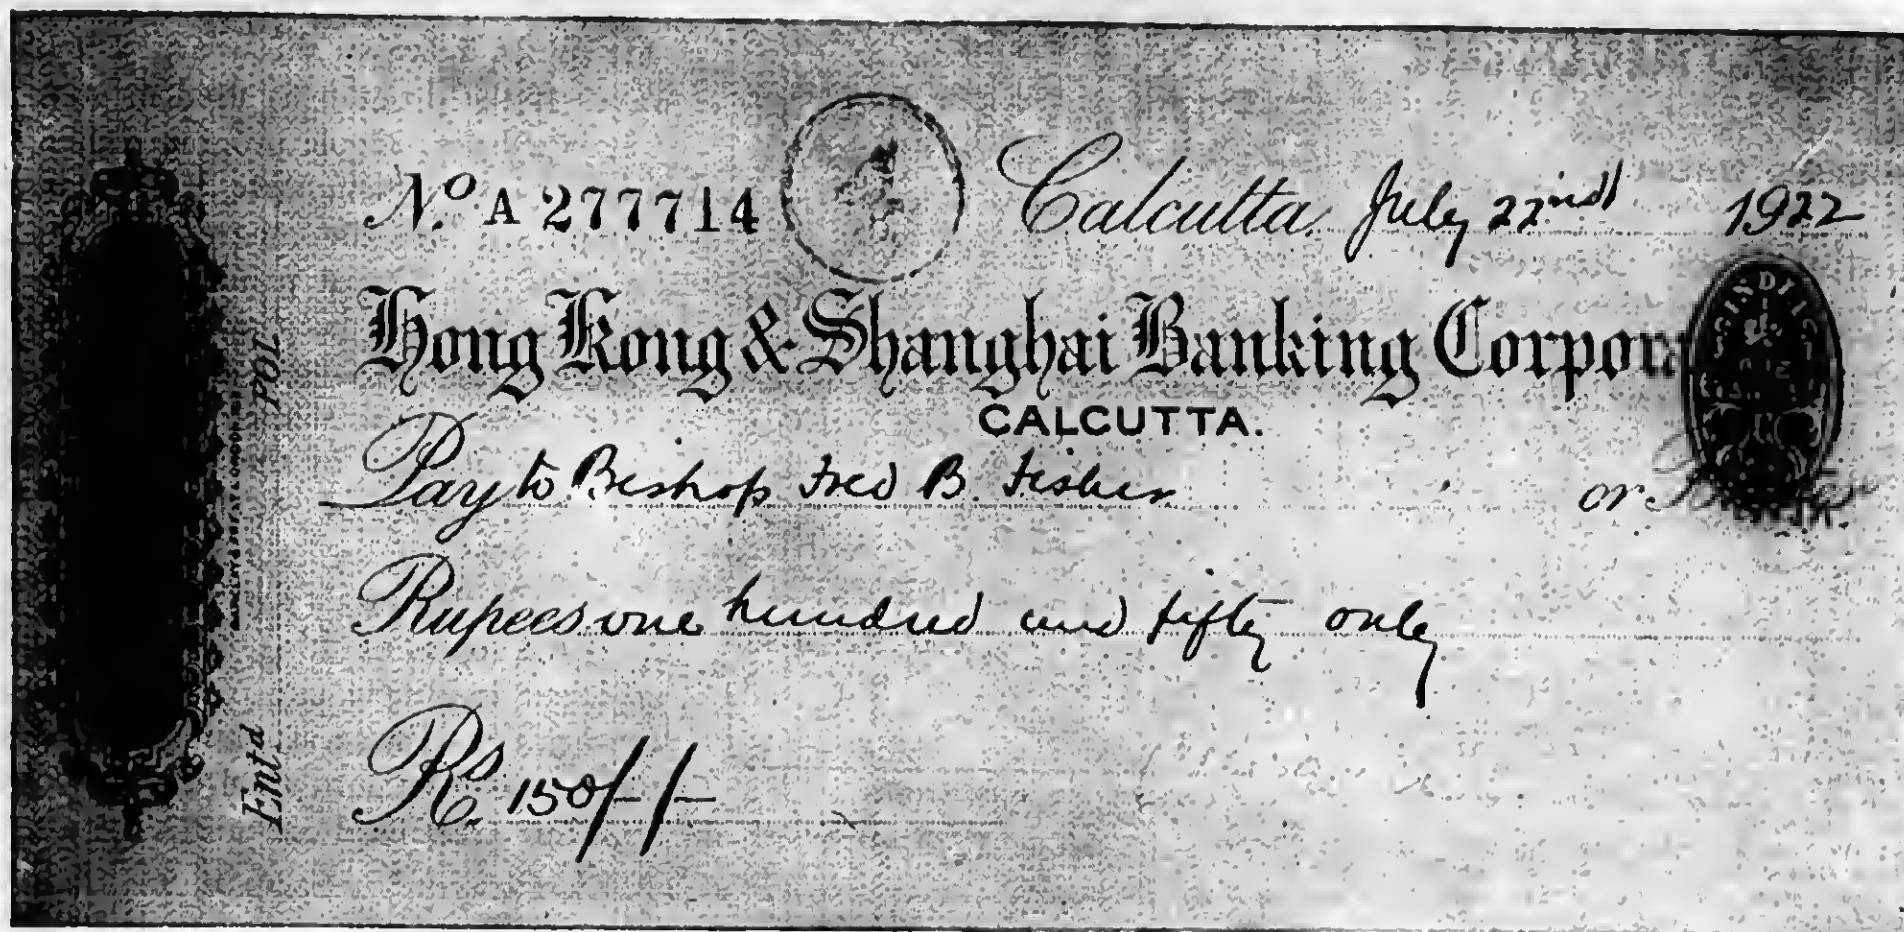 No. A 277714
Calcutta, July 22nd 1922
Hong Kong & Shanghai Banking
CALCUTTA.
Pay to Bishop Fred B. Fisher or
Rupees one hundred and fifty only
Rs. 150/-/-
Entd.